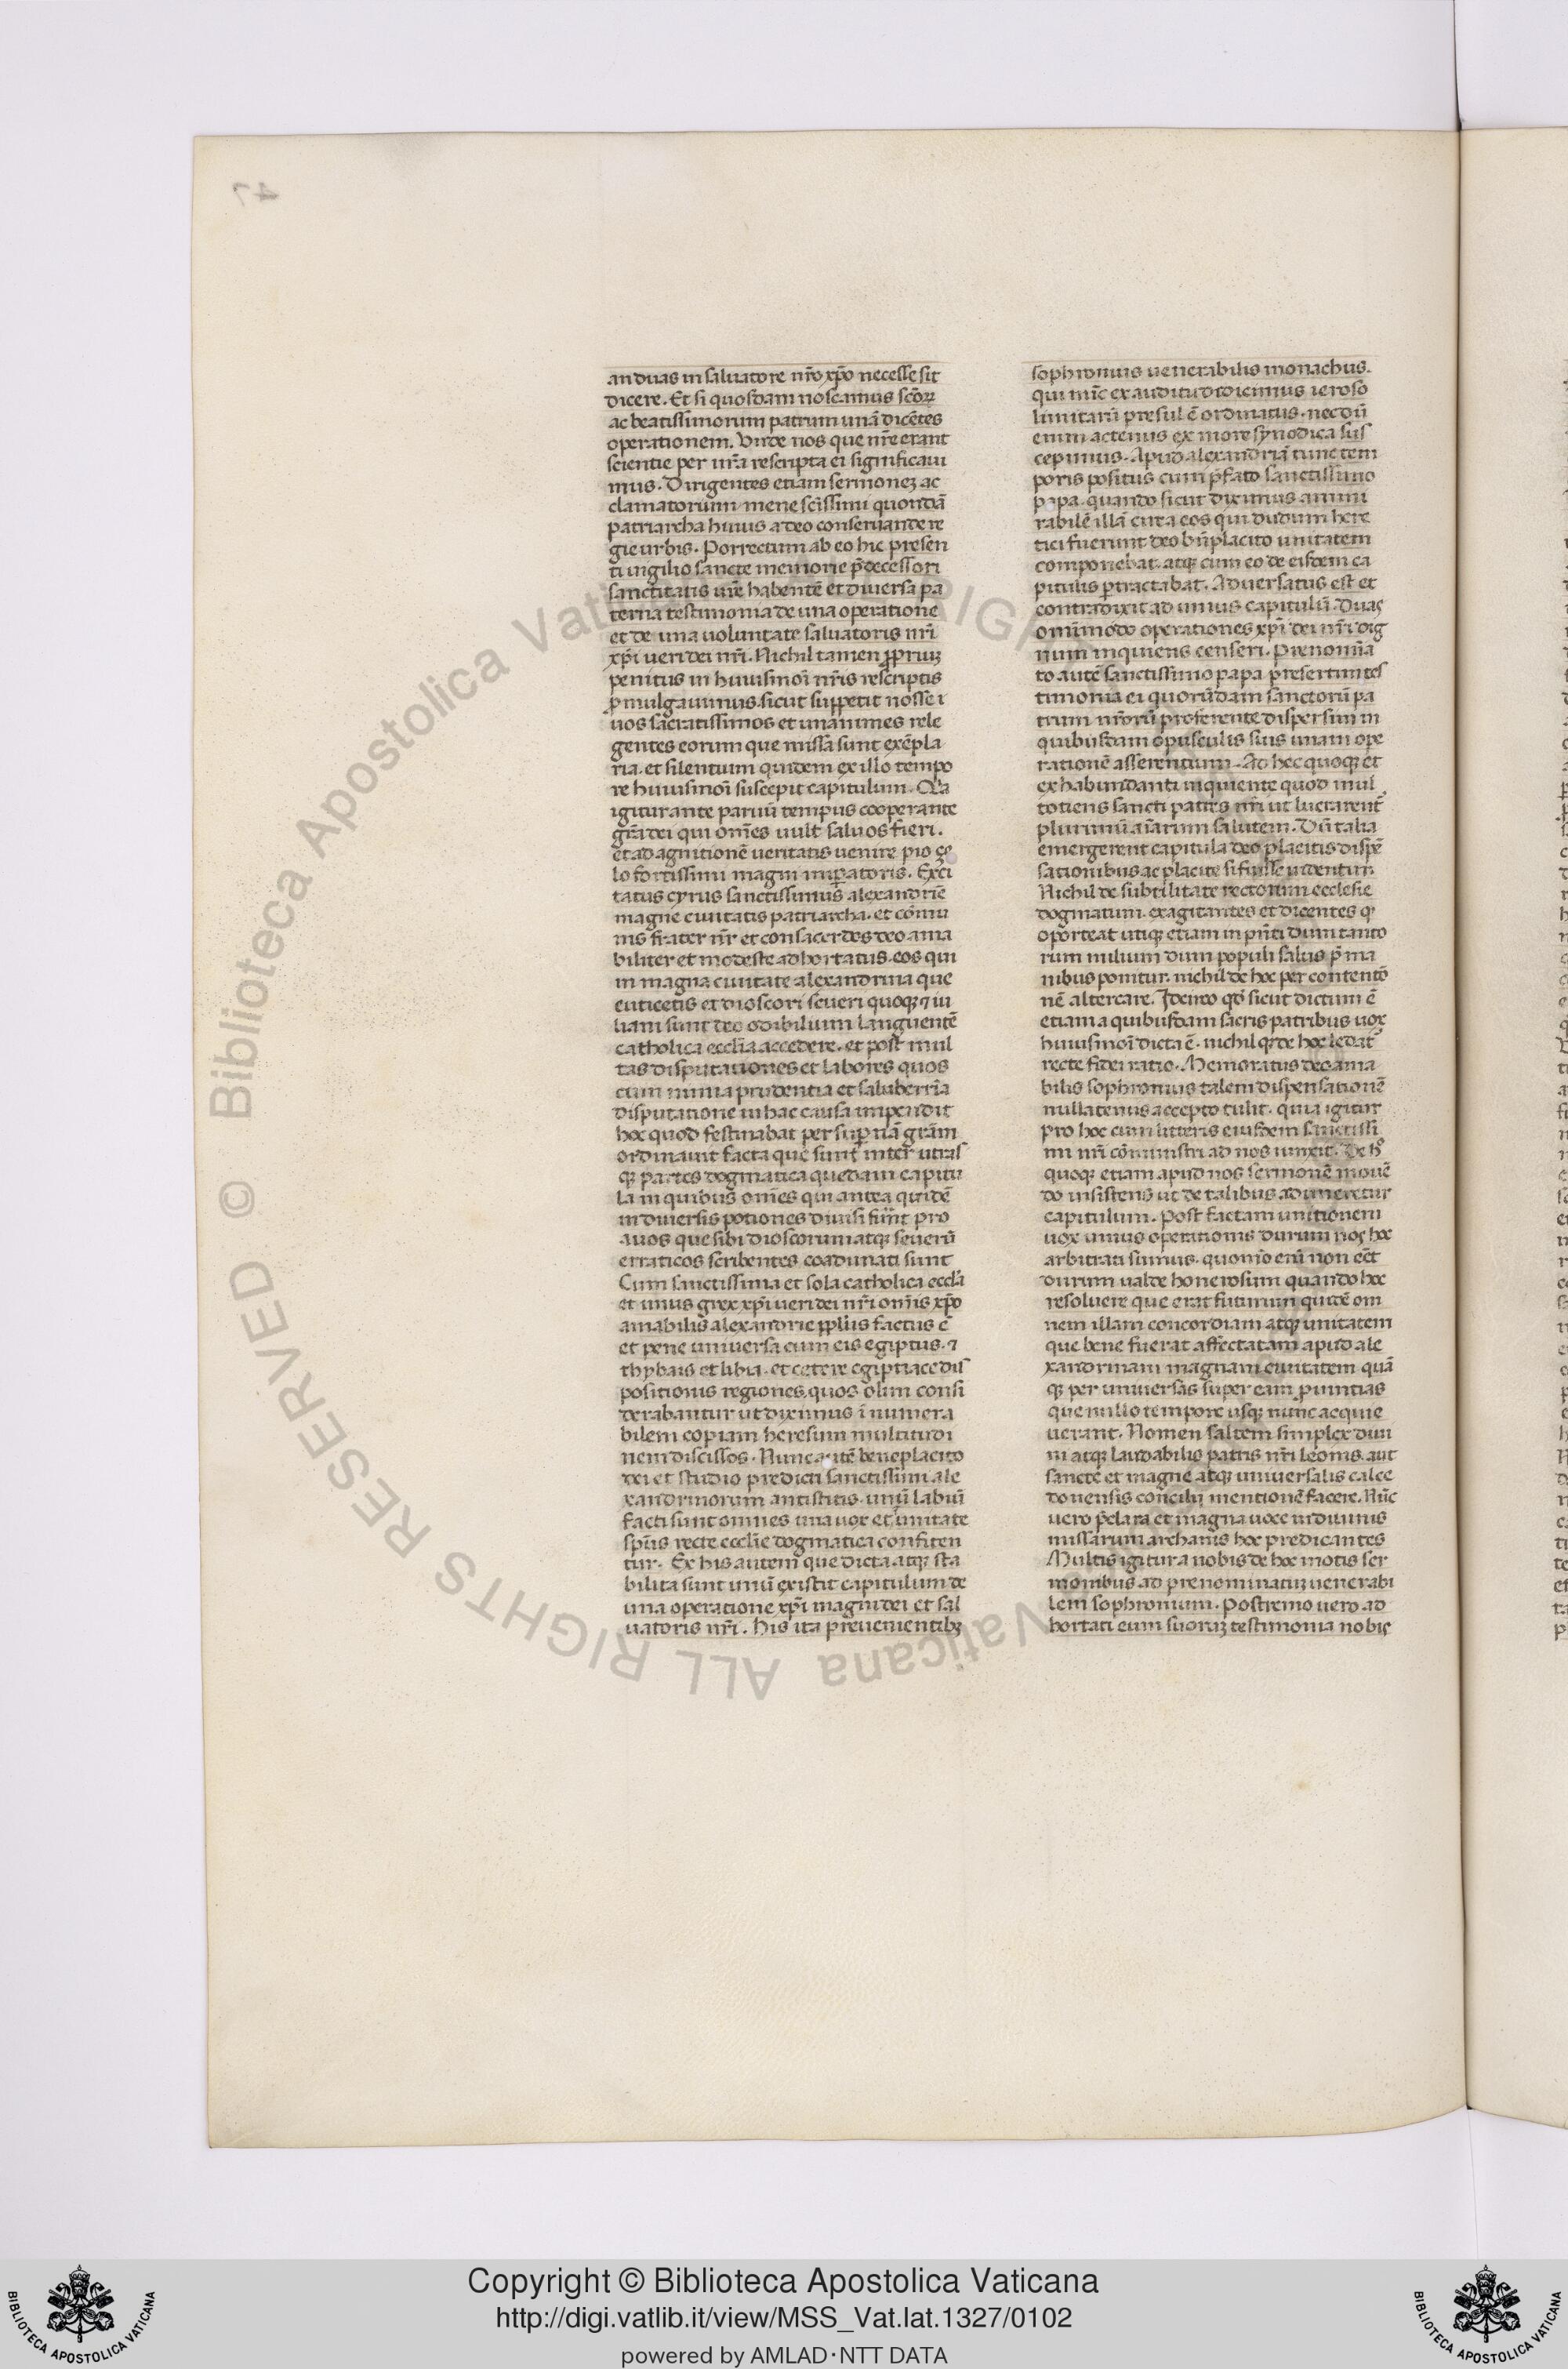 an duas in saluatore nr̄o xp̄o necesse sit
dicere. Et si quosdam noscamus sc̄oꝝ
ac beatissimorum patrum unā dicētes
operationem. Vnde nos que nr̄e erant
scientie per nr̄a rescripta ei significaui
mus. Dirigentes etiam sermoneꝫ ac
clamatorium mene sc̄issimi quondā
patriarcha huius a deo conseruande re
gie urbis. Porrectum ab eo hic presen
ti uigilio sancte memorie p̄decessori
sanctitatis ur̄e habentē et diuersa pa
terna testimonia de una operatione
et de una uoluntate saluatoris nr̄i
xp̄i ueri dei nr̄i. Nichil tamen ꝓpriuꝫ
penitus in huiusmoī nr̄is rescriptis
ꝓmulgauimus sicut suppetit nosse i
uos sacratissimos et unanimes rele
gentes eorum que missa sunt exēpla
ria. et silentium quidem ex illo tempo
re huiusmoī suscepit capitulum.
igitur ante paruū tempus cooperante
gr̄a dei qui om̄es uult saluos fieri.
et ad agnitionē ueritatis uenire pio çe
lo fortissimi magni imꝑatoris. Exci
tatus cyrus sanctissimus alexandrie
magne ciuitatis patriarcha. et cōmu
nis frater nr̄ et consacerdes deo ama
biliter et modeste adhortatus. eos qui
in magna ciuitate alexandrina que
euticetis et dioscori seueri quoqꝫ ⁊ iu
liani sunt deo odibilium languentē
catholica eccl̄ia accedere. et post mul
tas disputationes et labores quos
cum nimia prudentia et saluberr̄ia
disputatione in hac causa impendit
hoc quod festinabat per suꝑnā gr̄am
ordinauit facta que sunt inter utras
qꝫ partes dogmatica quedam capitu
la in quibus om̄es qui antea quidē
in diuersis potiones diuisi fuīnt pro
auos que sibi dioscorum atqꝫ seuerū
erraticos scribentes coadunati sunt
Cum sanctissima et sola catholica eccl̄a
et unus grex xp̄i ueri dei nr̄i om̄is xp̄o
amabilis alexandrie ꝓpl̄us factus ē
et pene uniuersa cum eis egiptus. ⁊
thybais et libia. et cetere egiptiace dis
positionis regiones. quos olim consi
derabantur ut diximus ī numera
bilem copiam heresum multitudi
nem discissos. Nunc autē beneplacito
dei et studio predicti sanctissimi ale
xandrinorum antistitis. unū labiū
facti sunt omnes una uox et unitate
sp̄us recte eccl̄ie dogmatica confiten
tur. Ex his autem que dicta atqꝫ sta
bilita sunt unū existit capitulum de
una operatione xp̄i magni dei et sal
uatoris nr̄i. his ita preuenientibꝫ
sophronius uenerabilis monachus.
qui nūc ex auditu didicimus ieroso
limitarū presul ē ordinatus. necdū
enim actenus ex more synodica sus
cepimus. Apud alexandriā tunc tem
poris positus cum p̄fato sanctissimo
papa. quando sicut diximus ammi
rabilē illā cura eos qui dudum here
tici fuerunt deo bn̄placito unitatem
componebat. atqꝫ cum eo de eisdem ca
pitulis ꝑtractabat. Aduersatus est et
contradixit ad unius capitulū. Duas
omīmodo operationes xp̄i dei nr̄i dig
num inquiens censeri. Prenomīa
to autē sanctissimo papa presertim tes
timonia ei quorūdam sanctorū pa
trum nr̄orū proferente dispersim in
quibusdam opusculis suis unam ope
rationē asserentium. Ad hec quoqꝫ et
ex habundanti inquiente quod mul
totiens sancti patres nr̄i ut lucrarent̄
plurimū aīarum salutem. Dū talia
emergerent capitula deo placitis dispē
sationibus ac placite si fuisse uidentur.
Nichil de subtilitate rectorum ecclesie
dogmatum. exagitantes et dicentes qꝫ
oporteat utiqꝫ etiam in pn̄ti dum tanto
rum milium dum populi salus p̄ ma
nibus ponitur. nichil de hoc per contentō
nē altercare. Idcirco qd̄ sicut dictum ē
etiam a quibusdam sacris patribus uox
huiusmoī dicta ē. nichil qꝫ de hoc ledat̄
recte fidei ratio. Memoratus deo ama
bilis sophronius talem dispensationē
nullatenus accepto tulit. quia igitur
pro hoc cum litteris eiusdem sanctissi
mi nr̄i cōministri ad nos iunxit. De h̊
quoqꝫ etiam apud nos sermonē mouē
do insistens ut de talibus adimeretur
capitulum. Post factam unitionem
uox unius operationis durum nos hoc
arbitrati sumus. quomō enī non eēt
durum ualde honerosum quando hoc
resoluere que erat futurum quidē om
nem illam concordiam atqꝫ unitatem
que bene fuerat affectatam apud ale
xandrinam magnam ciuitatem quā
qꝫ per uniuersas super eam ꝓuintias
que nullo tempore usqꝫ nunc acquie
uerant. Nomen saltem simplex diui
ni atqꝫ laudabilis patris nr̄i leonis. aut
sancte et magne atqꝫ uniuersalis calce
donensis concilij mentionē facere. Nūc
uero p̄clara et magna uoce in diuinis
missarum archanis hoc predicantes
Multis igitur a nobis de hoc motis ser
monibus. ad prenominatuꝫ uenerabi
lem sophronium. Postremo uero ad
hortati eum suoruꝫ testimonia nobis
47
© Biblioteca Apostolica Vaticana ALL RIGHTS RESERVED
Copyright © Biblioteca Apostolica Vaticana
http://digi.vatlib.it/view/MSS_Vat.lat.1327/0102
powered by AMLAD·NTT DATA
BIBLIOTECA APOSTOLICA VATICANA
BIBLIOTECA APOSTOLICA VATICANA